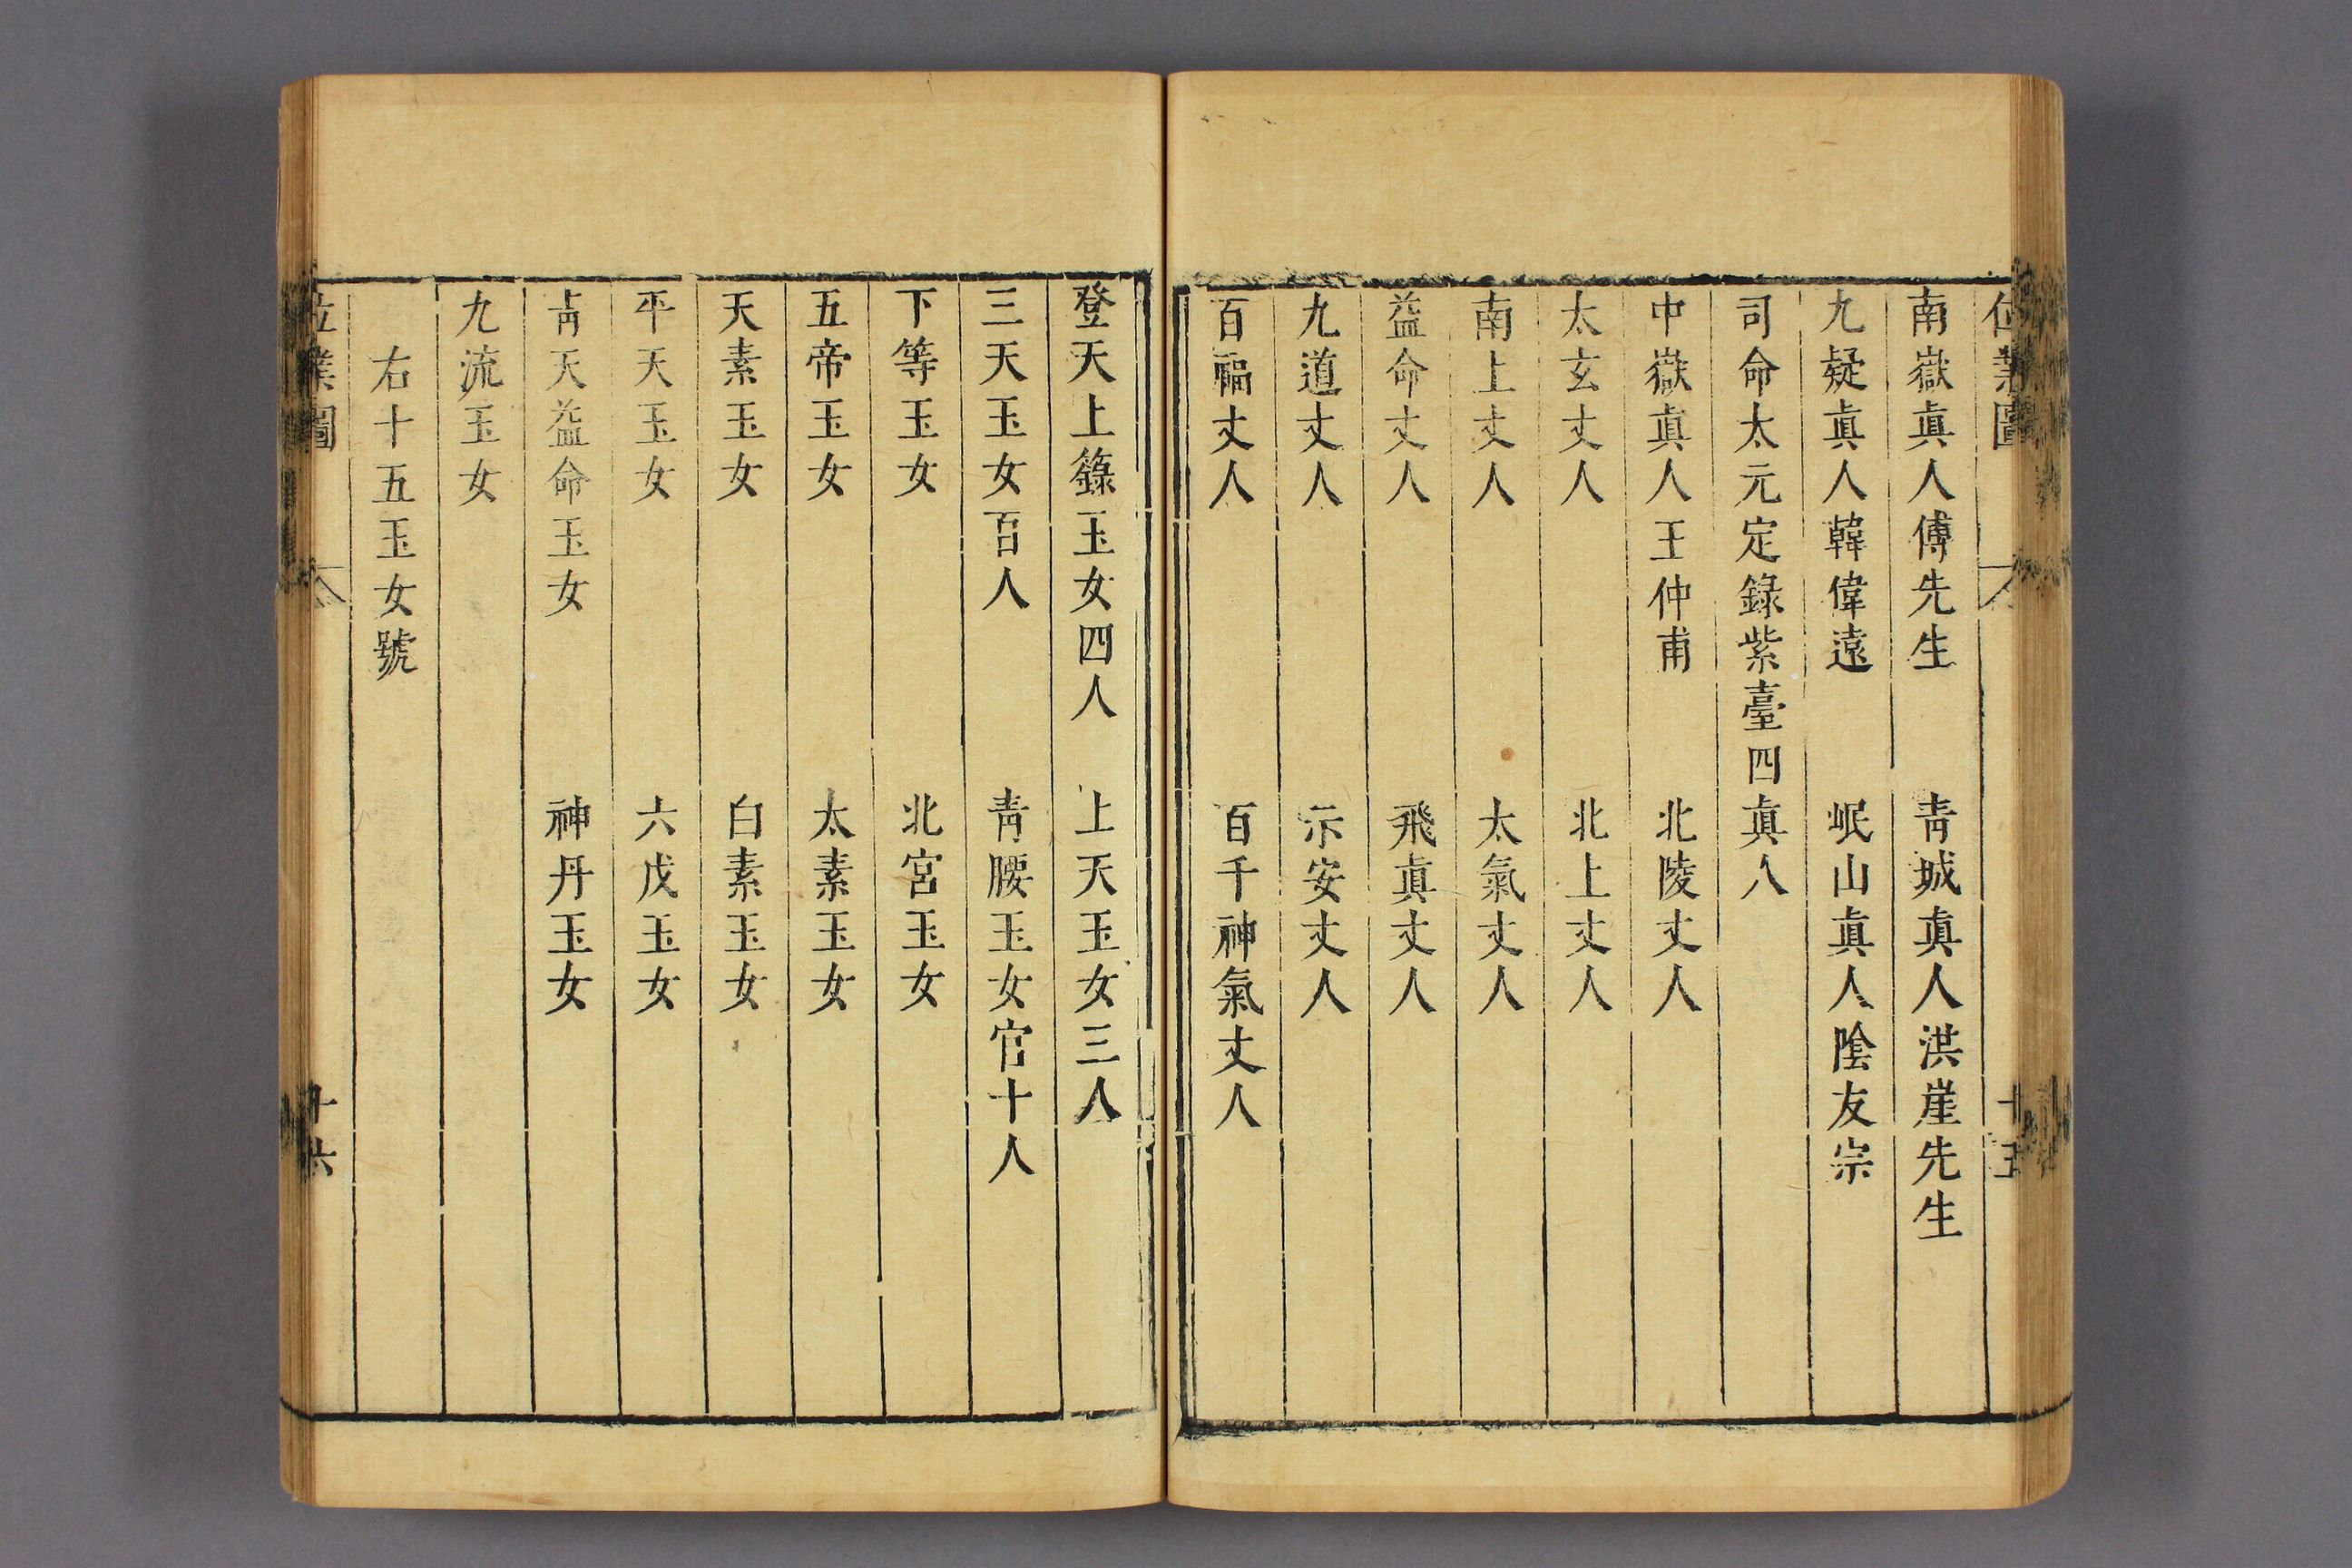 南嶽眞人傅先生　青城眞人洪崖先生
九疑眞人韓偉遠　岷山眞人陰友宗
司命太元定錄紫臺四眞人
中嶽眞人王仲甫　北陵丈人
太玄丈人　北上丈人
南上丈人　太氣丈人
益命丈人　飛眞丈人
九道丈人　示安丈人
百福丈人　百千神氣丈人
登天上籙玉女四人　上天玉女三人
三天玉女百人　靑腰玉女官十人
下等玉女　北宮玉女
五帝玉女　太素玉女
天素玉女　白素玉女
平天玉女　六戊玉女
靑天益命玉女　神丹玉女
九流玉女
右十五玉女號
位業圖
十六